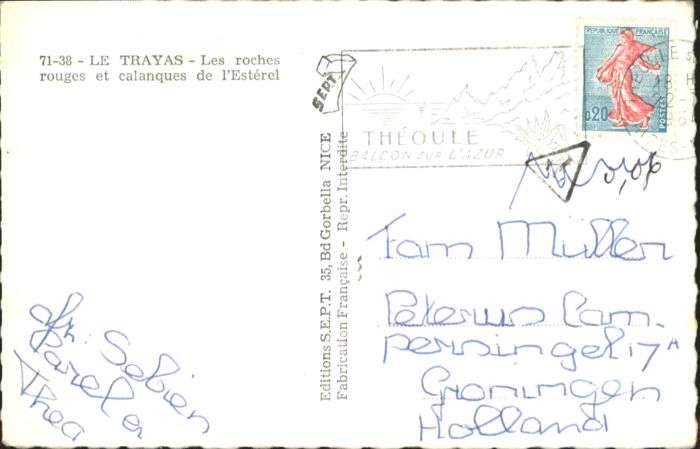 71-38 - LE TRAYAS - Les roches
rouges et calanques de l'Estérel
SEPT
Editions S.E.P.T. 35, Bd Gorbella NICE
Fabrication Française - Repr. Interdite
REPUBLIQUE FRANÇAISE
0,20
POSTES
THÉOULE
BALCON SUR L'AZUR
T
0,06
Fam Müller
Peterus Cam.
persingel 17A
Groningen
Holland
fr. Sebien
Karel en
Thea